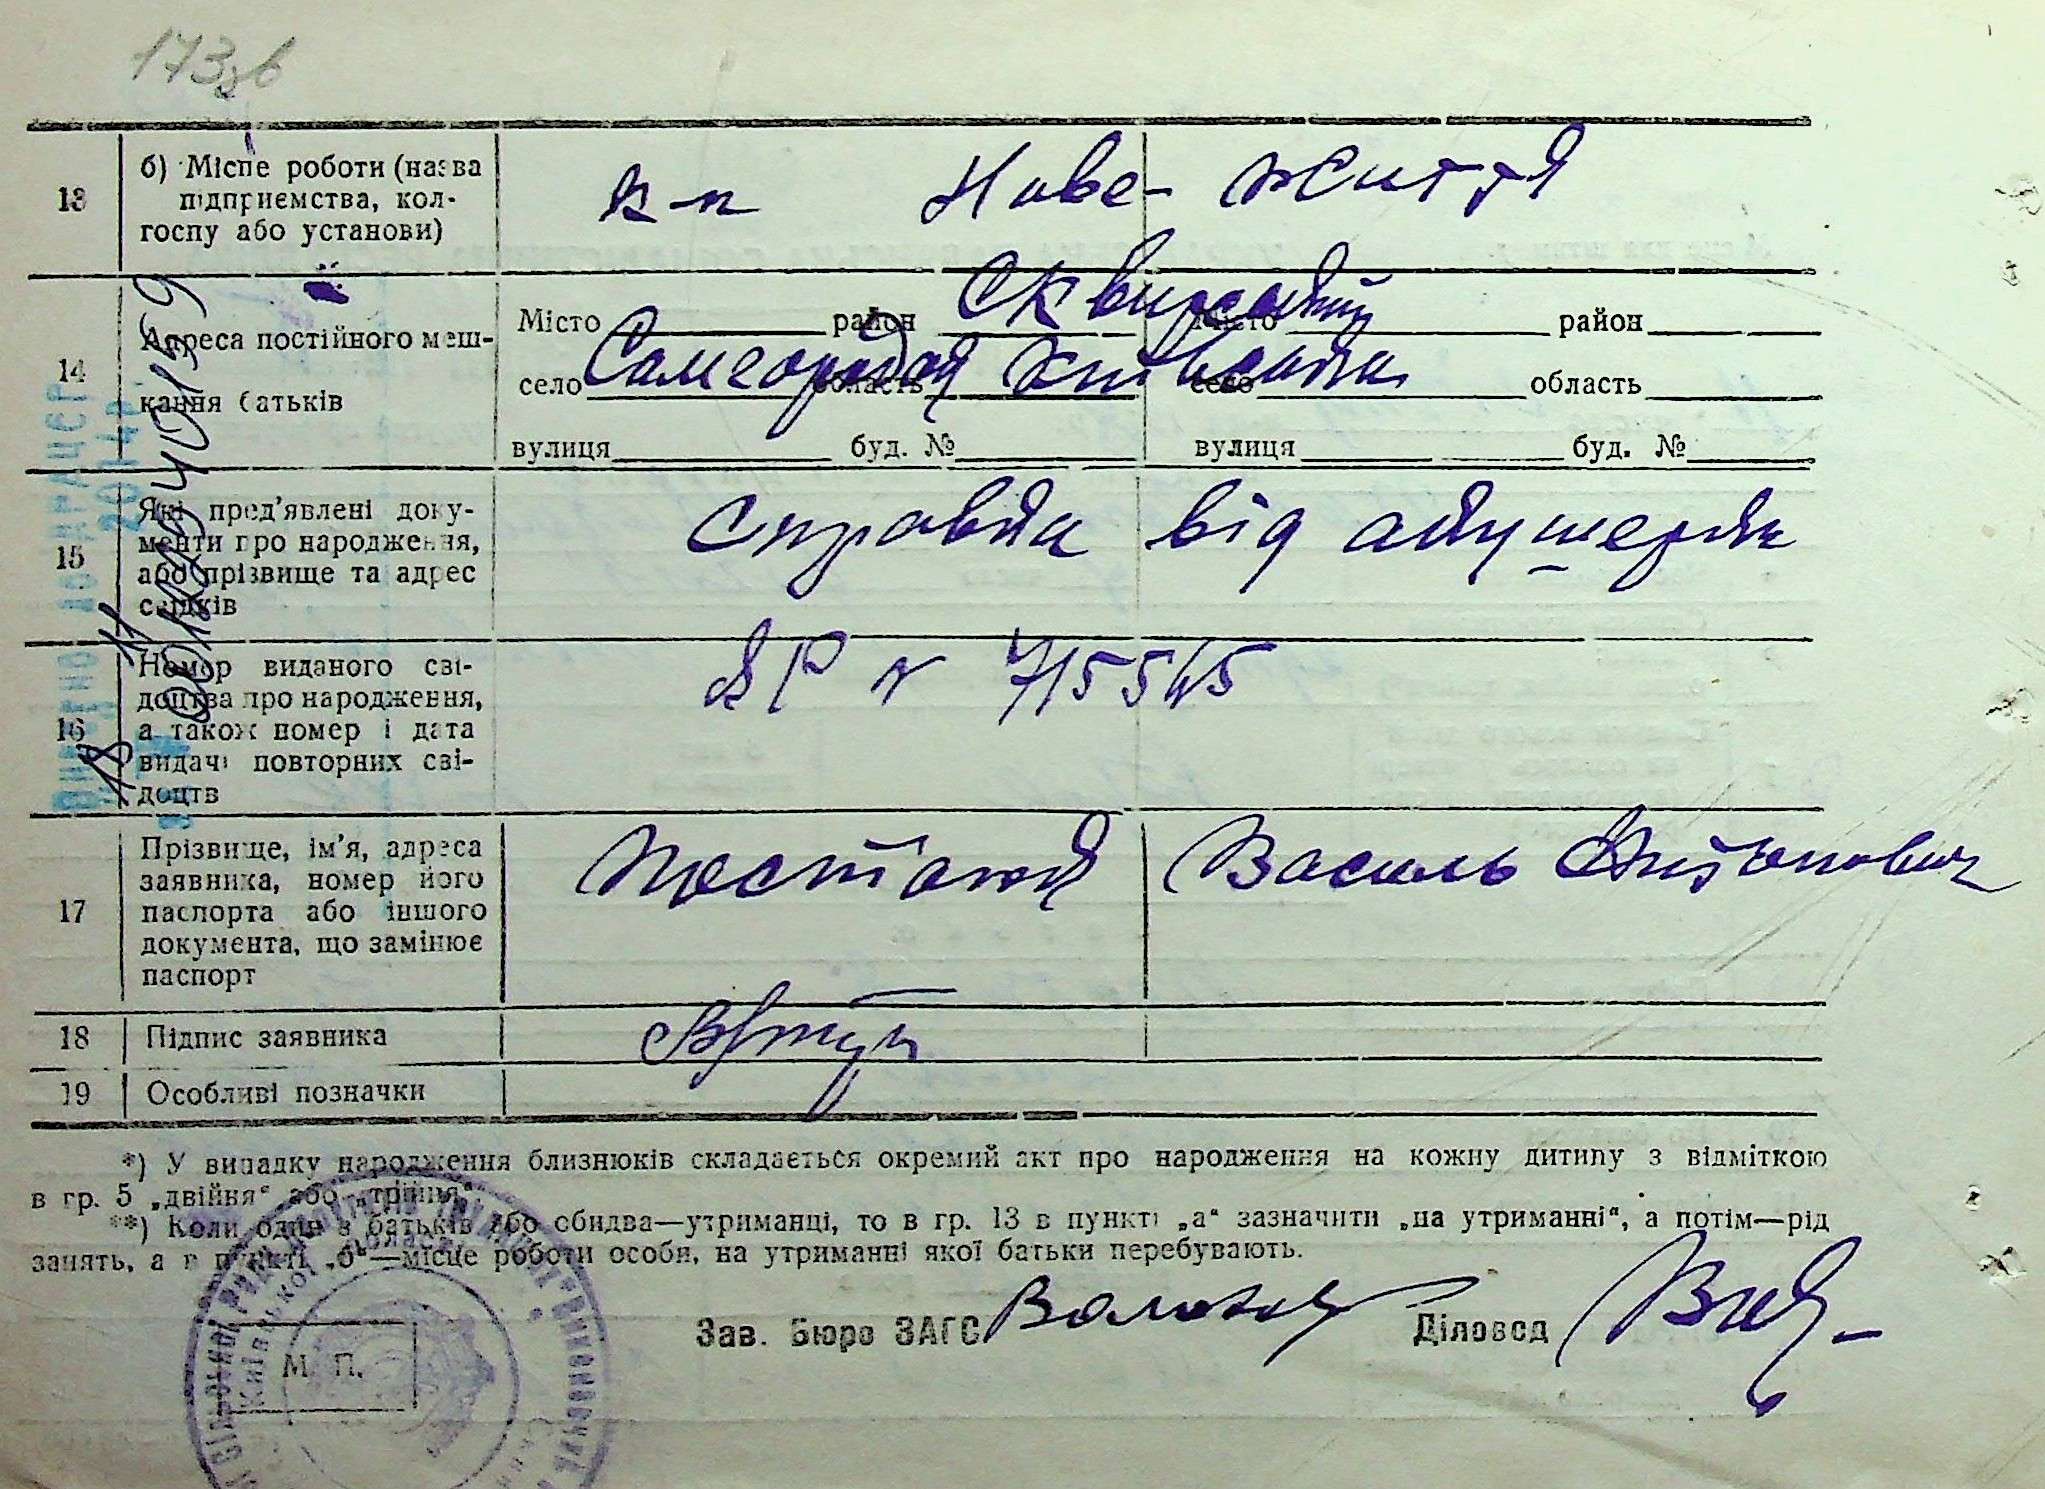 173зв
13 б) Місце роботи (назва
підприємства, кол-
госпу або установи)
к-п Нове- життя
14 Адреса постійного меш-
кання батьків
Сквирський
Місто район Місто район
Самгородок Київська
село область село область
вулиця буд. № вулиця буд. №
15 Які пред'явлені доку-
менти про народження,
або прізвище та адрес
свідків
справка від акушерки
16 Номер виданого сві-
доцтва про народження,
а також номер і дата
видачі повторних сві-
доцтв
№ 715545
17 Прізвище, ім'я, адреса
заявника, номер його
паспорта або іншого
документа, що замінює
паспорт
Василь Антонович
18 Підпис заявника
19 Особливі позначки
*) У випадку народження близнюків складається окремий акт про народження на кожну дитину з відміткою
в гр. 5 „двійня“ або „трійня“.
**) Коли один з батьків або обидва—утриманці, то в гр. 13 в пункті „а“ зазначити „на утриманні“, а потім—рід
занять, а в пункті „б“—місце роботи особи, на утриманні якої батьки перебувають.
Зав. Бюро ЗАГС Діловод
М. П.